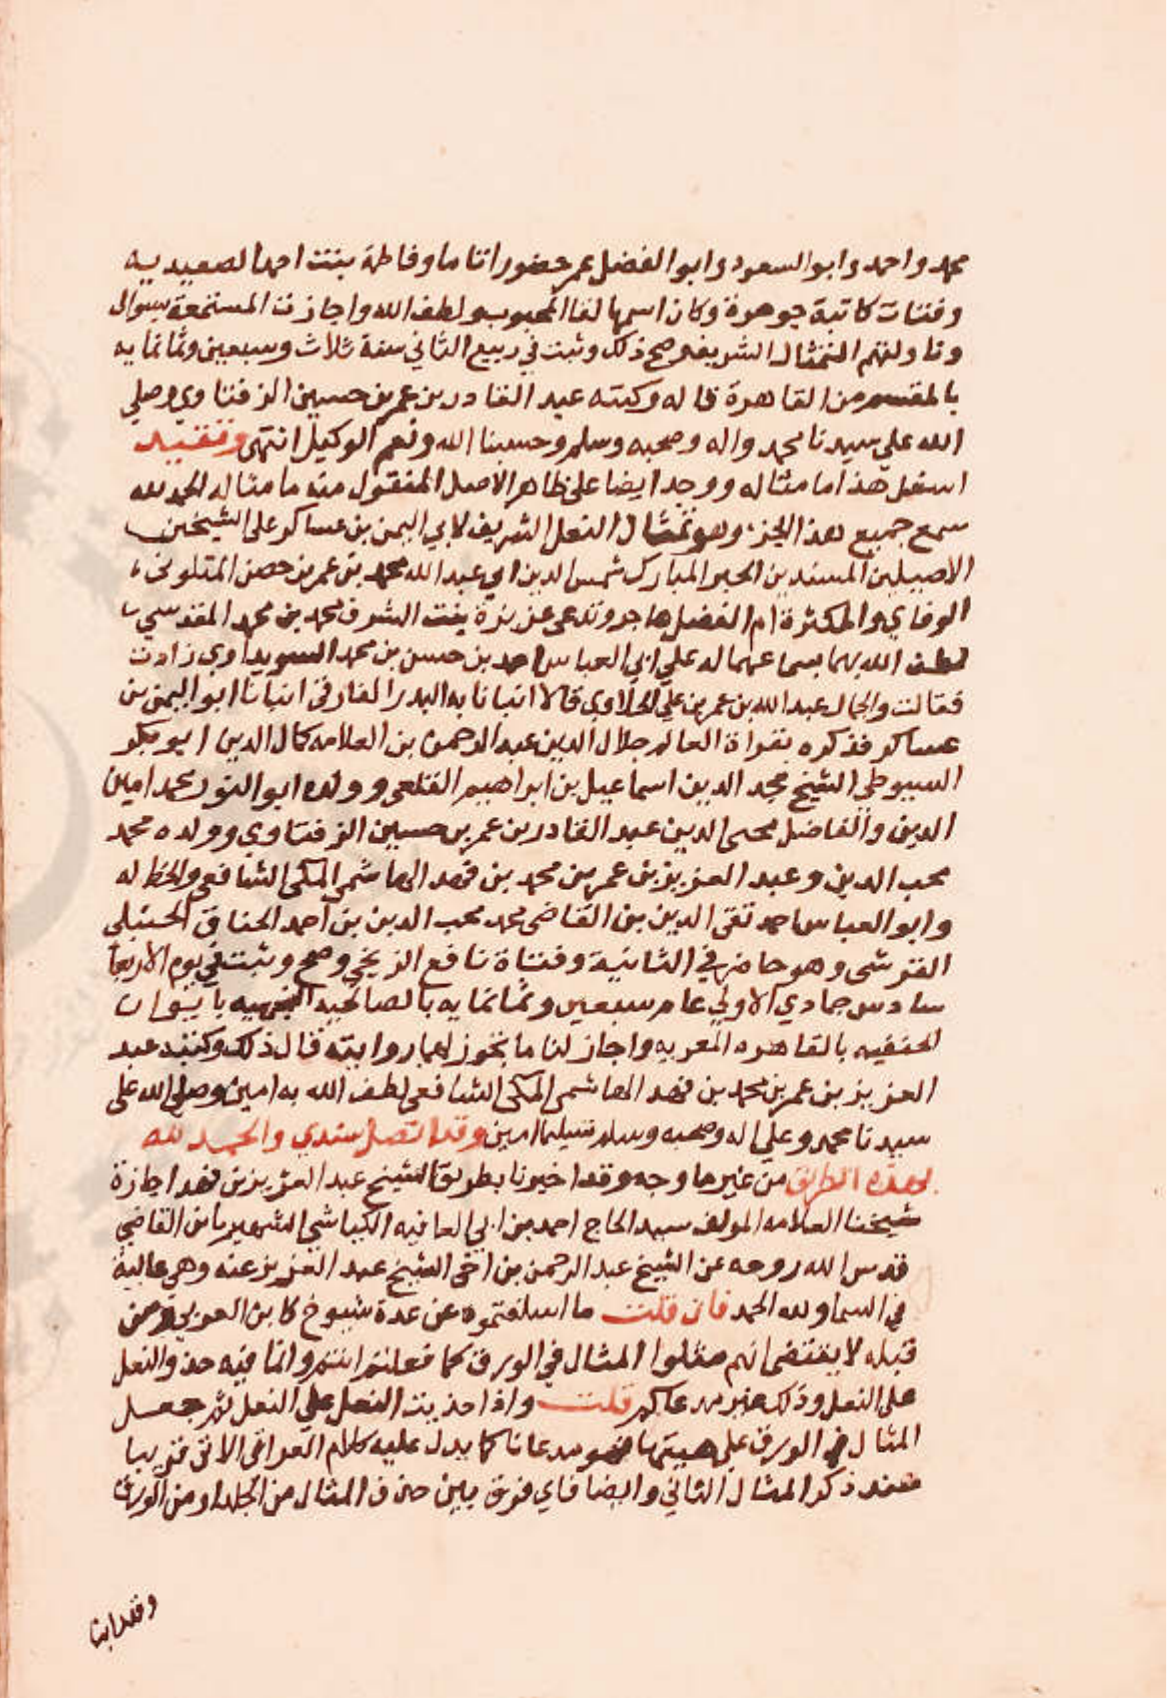 محمد واحمد وابو السعود وابو الفضل عمر حضورا تاما وفاطمة بنت احمد الصعيديه
وفتيات كاتبة جوهرة وكان اسمها لفا المحبوب لطف الله واجازت المستمعة بسوال
وناولتهم التمثال الشريف وصح ذلك وثبت في ربيع الثاني سنة ثلاث وسبعين وثمانمايه
بالمقسم من القاهرة قاله وكتبه عبد القادر بن عمر بن حسين الزفتاوي وصلي
الله علي سيدنا محمد واله وصحبه وسلم وحسبنا الله ونعم الوكيل انتهى وتقييد
اسفل هذا ما مثاله ووجد ايضا على ظاهر الاصل المنقول منه ما مثاله الحمد لله
سمع جميع هذا الجزء وهو تمثال النعل الشريف لابي اليمن بن عساكر على الشيخين
الاصيلين المسندين الخير المبارك شمس الدين ابي عبد الله محمد بن عمر بن حصن الملتوني
الوفاي والمكثرة ام الفضل هاجر وتدعى عزيزة بنت الشرف محمد بن محمد المقدسي
لطف الله بهما بسماعهما له علي ابي العباس احمد بن حسن بن محمد السويداوي زادت
فقالت والجمال عبد الله بن عمر بن علي الحلاوي قالا انبانا به البدر الفارقي انبانا ابو اليمن بن
عساكر فذكره بقراة العالم جلال الدين عبد الرحمن بن العلامه كمال الدين ابو بكر
السيوطي الشيخ مجد الدين اسماعيل بن ابراهيم القلعي وولده ابو النور محمد امين
الدين والفاضل محيى الدين عبد القادر بن عمر بن حسين الزفتاوي وولده محمد
محب الدين وعبد العزيز بن عمر بن محمد بن فهد الهاشمي المكي الشافعي والخط له
وابو العباس احمد تقي الدين بن القاضي محمد محب الدين بن احمد الحنبلي
القرشى وهو حاضر في الثانية وفتاة نافع الزيخي وصح وثبت في يوم الاربعا
سادس جمادي الاولي عام سبعين وثمانمايه بالصالحيه النجميه بايوان
الحنفيه بالقاهره المعزيه واجاز لنا ما يجوز لهما روايته قال ذلك وكتبه عبد
العزيز بن عمر بن محمد بن فهد الهاشمى المكى الشافعى لطف الله به امين وصلى الله على
سيدنا محمد وعلي اله وصحبه وسلم تسليما امين وقد اتصل سندي والحمد لله
بهذه الطرق من غير ما وجه وقد اخبرنا بطريق الشيخ عبد العزيز بن فهد اجازة
شيخنا العلامه المولف سيد الحاج احمد بن ابي العافيه المكناسي الشهير بابن القاضي
قدس الله روحه عن الشيخ عبد الرحمن بن اخى الشيخ عبد العزيز عنه وهي عالية
في السما ولله الحمد فان قلت ما اسلفتموه عن عدة شيوخ كابن العربي ومن
قبله لا يقتضى انهم مثلوا المثال في الورق كما فعلتم انتم وانما فيه حذو النعل
على النعل وذلك غير مدعاكم قلت واذا حذيت النعل علي النعل ثم جعل
المثال في الورق على هيئتها فهو مدعانا كما يدل عليه كلام العراقى الاتى قريبا
عند ذكر المثال الثاني وايضا فاي فرق بين حذف المثال من الجلد او من الورق
وقد ابنا